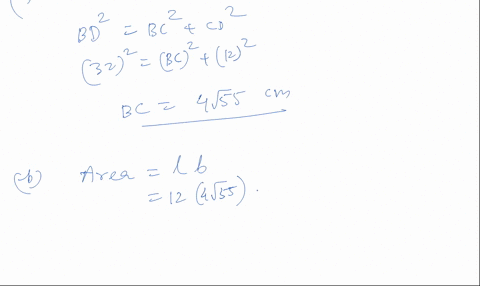 BD² = BC² + CD²
(32)² = (BC)² + (12)²
BC = 4√55 cm
(b) Area = l b
= 12 (4√55).